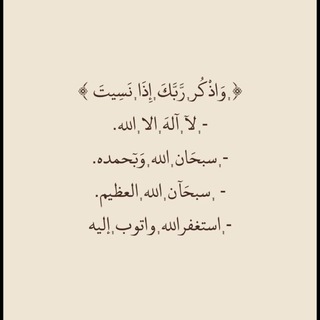 ﴿ وَاذْكُر رَّبَّكَ إِذَا نَسِيتَ ﴾
- لآ آلهَ الا الله.
- سبحَان الله وَبَٓحمده.
- سبحَآن الله العظيم.
- استغفرالله واتوب إليه